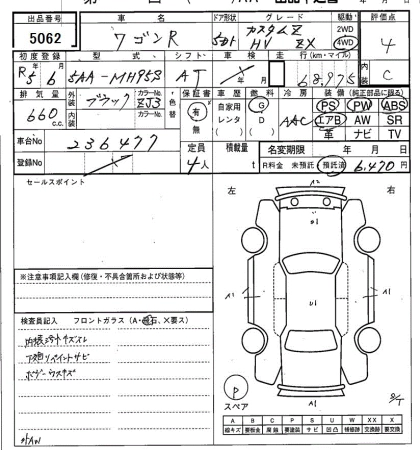 出品番号 車名 ドア形状 グレード 駆動 評価点
5062 ワゴンR 5ドア カスタムZ HV ZX 2WD 4WD 4
初度登録 型式 シフト 車検 走行(km・マイル) 内装
R5 6 5AA-MH95S AT 年 月 68,975 C
排気量 外装 ブラック カラーNo ZJ3 色替 保証書 車歴 燃料 冷房 装備(純正部品に限る)
660 c.c. 内装 カラーNo 有 無 自家用 レンタ G D AAC PS PW ABS
エアB AW SR
革 ナビ TV
車台No 236477 定員 積載量 名変期限 年 月 日
登録No 4人 t R料金 未預託 預託済 6,470円
セールスポイント
左 右
※注意事項記入欄(修復・不具合箇所および状態等)
検査員記入 フロントガラス(A・飛石、X要ス)
スペア
A B C P S U W X XX X
線キズ 要板金 腐蝕 要塗装 サビ 凹凸 補修跡 交換跡 要交換